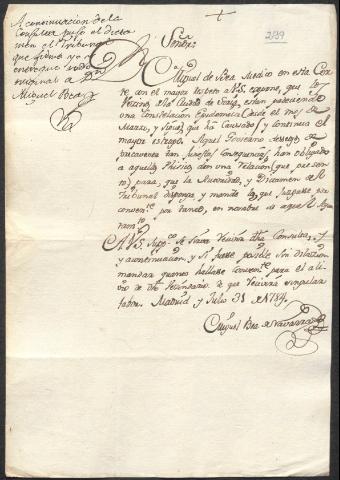 A continuacion de la
Consulta puso el dicta
men el Tribunal
que firmé y
entregué
original a Dn
Miguel Bea
239
Señor
Miguel de Bea Medico en esta Cor
te con el mayor respeto a V.S. expone, que los
Vecinos de la Ciudad de están padeciendo
una Constelacion Epidemica desde el mes de
Marzo, y sigue; que ha Causado, y continua el
mayor estrago. Aquel Govierno deseoso de
precaver tan funestas Consequencias, han obligado
a aquellos Phisicos una Relacion (que presen
to) para, que la Autoridad, y Dictamen de el
Tribunal disponga, y mande lo que juzgase por
convente por tanto, en nombre de aquel Ayun
tamto
A V.S. suppca se sirva recivir dha Consulta, y
a continuacion, y si fuese posible sin dilacion
mandar quanto hallase convente para el ali
vio de este Vecindario de que recivirá singular
fabor. Madrid y Julio 31 de 1784.
Miguel Bea de Navarra